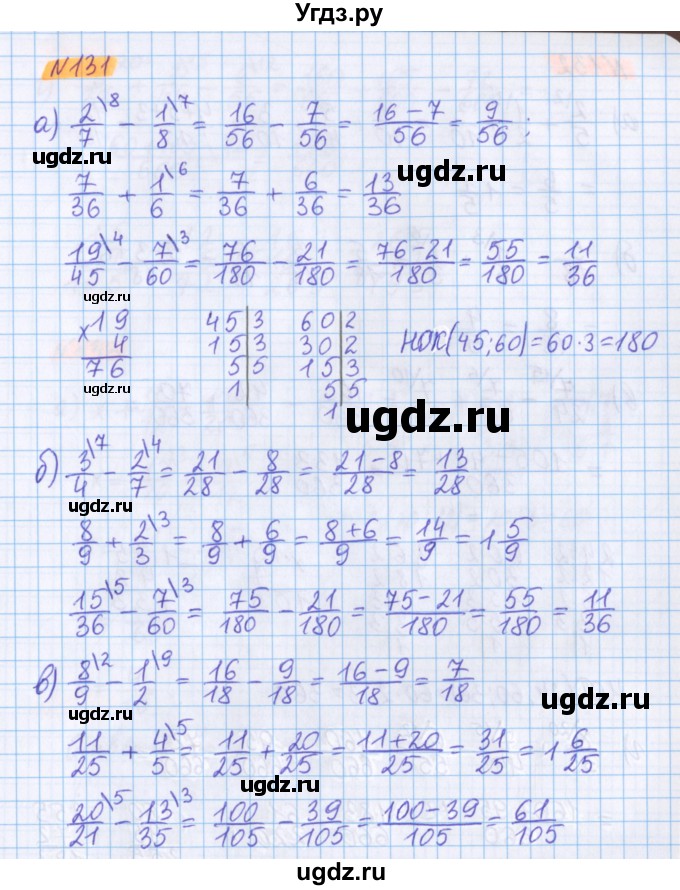 Угдз.ру
N131
а) 2/7\8 − 1/8\7 = 16/56 − 7/56 = (16−7)/56 = 9/56;
ugdz.ru
ugdz.ru
7/36 + 1/6\6 = 7/36 + 6/36 = 13/36
19/45\4 − 7/60\3 = 76/180 − 21/180 = (76−21)/180 = 55/180 = 11/36
ugdz.ru
×19 45|3 60|2 НОК(45;60)=60·3=180
4 15|3 30|2
76 5|5 15|3
1| 5|5
1|
ugdz.ru
ugdz.ru
б) 3/4\7 − 2/7\4 = 21/28 − 8/28 = (21−8)/28 = 13/28
ugdz.ru
8/9 + 2/3\3 = 8/9 + 6/9 = (8+6)/9 = 14/9 = 1 5/9
ugdz.ru
15/36\5 − 7/60\3 = 75/180 − 21/180 = (75−21)/180 = 55/180 = 11/36
в) 8/9\2 − 1/2\9 = 16/18 − 9/18 = (16−9)/18 = 7/18
ugdz.ru
ugdz.ru
11/25 + 4/5\5 = 11/25 + 20/25 = (11+20)/25 = 31/25 = 1 6/25
ugdz.ru
20/21\5 − 13/35\3 = 100/105 − 39/105 = (100−39)/105 = 61/105
ugdz.ru
ugdz.ru